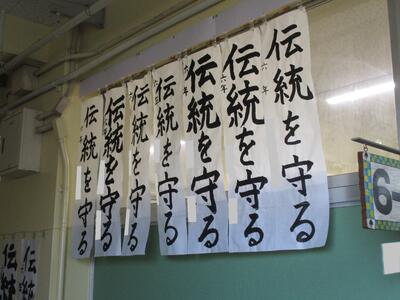 伝統を守る
六年
伝統を守る
六年
伝統を守る
伝統を守る
伝統を守る
伝統を守る
伝統を守る
伝統
伝統
6-